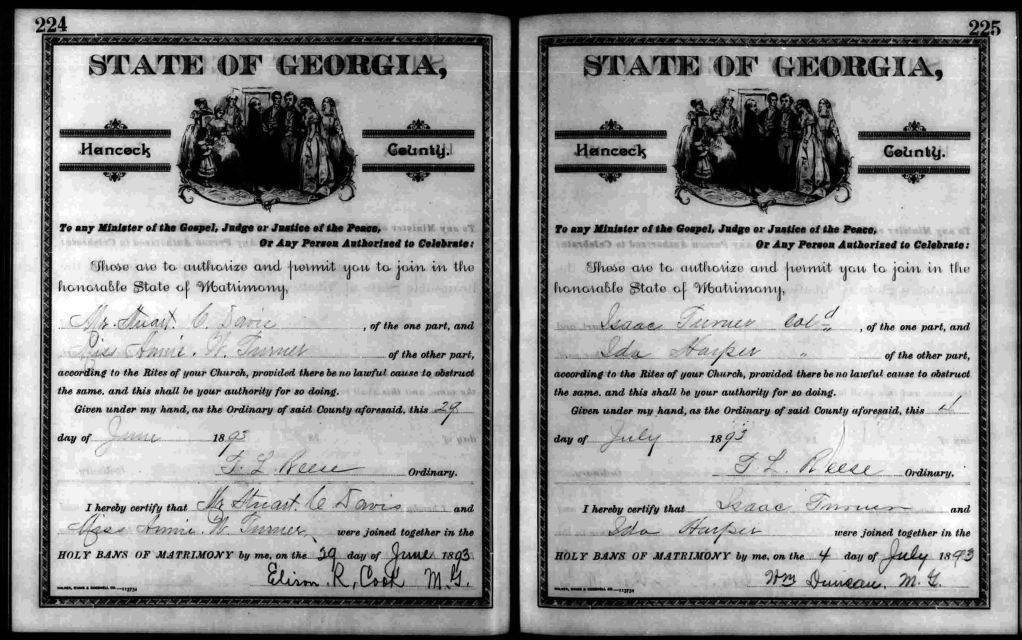 224
STATE OF GEORGIA,
Hancock County.
To any Minister of the Gospel, Judge or Justice of the Peace,
Or Any Person Authorized to Celebrate:
These are to authorize and permit you to join in the
honorable State of Matrimony,
Mr. Stuart. C. Davis , of the one part, and
Miss Annie. W. Turner of the other part,
according to the Rites of your Church, provided there be no lawful cause to obstruct
the same. and this shall be your authority for so doing.
Given under my hand, as the Ordinary of said County aforesaid, this 29
day of June 1893
T. L. Reese Ordinary.
I hereby certify that Mr Stuart. C Davis and
Miss Annie. W. Turner were joined together in the
HOLY BANS OF MATRIMONY by me, on the 29 day of June 1893
Elison R, Cook M. G.
225
STATE OF GEORGIA,
Hancock County.
To any Minister of the Gospel, Judge or Justice of the Peace,
Or Any Person Authorized to Celebrate:
These are to authorize and permit you to join in the
honorable State of Matrimony,
Isaac Turner Cold , of the one part, and
Ida Harper " of the other part,
according to the Rites of your Church, provided there be no lawful cause to obstruct
the same. and this shall be your authority for so doing.
Given under my hand, as the Ordinary of said County aforesaid, this 4
day of July 1893
T. L. Reese Ordinary.
I hereby certify that Isaac Turner and
Ida Harper were joined together in the
HOLY BANS OF MATRIMONY by me, on the 4 day of July 1893
Wm Duncan, M. G.